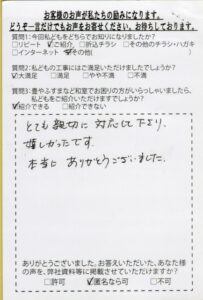 お客様のお声が私たちの励みになります。
どうぞ一言だけでもお声をお寄せください。お待ちしております。
質問1:今回私どもをどちらでお知りになりましたか?
□リピート ☑ご紹介 □折込チラシ □その他のチラシ・ハガキ
□インターネット ☑その他(
質問2:私どもの工事にはご満足いただけましたでしょうか?
☑大満足 □満足 □やや不満 □不満
質問3:畳やふすまなど和室でお困りの方がいらっしゃいましたら、
私どもをご紹介いただけますでしょうか?
☑紹介できる □紹介できない
とても親切に対応して下さり、
嬉しかったです。
本当にありがとうございました。
ありがとうございました。お答えいただいた、あなた様
の声を、弊社資料等に掲載させていただけますか?
□許可 ☑匿名なら可 □不可